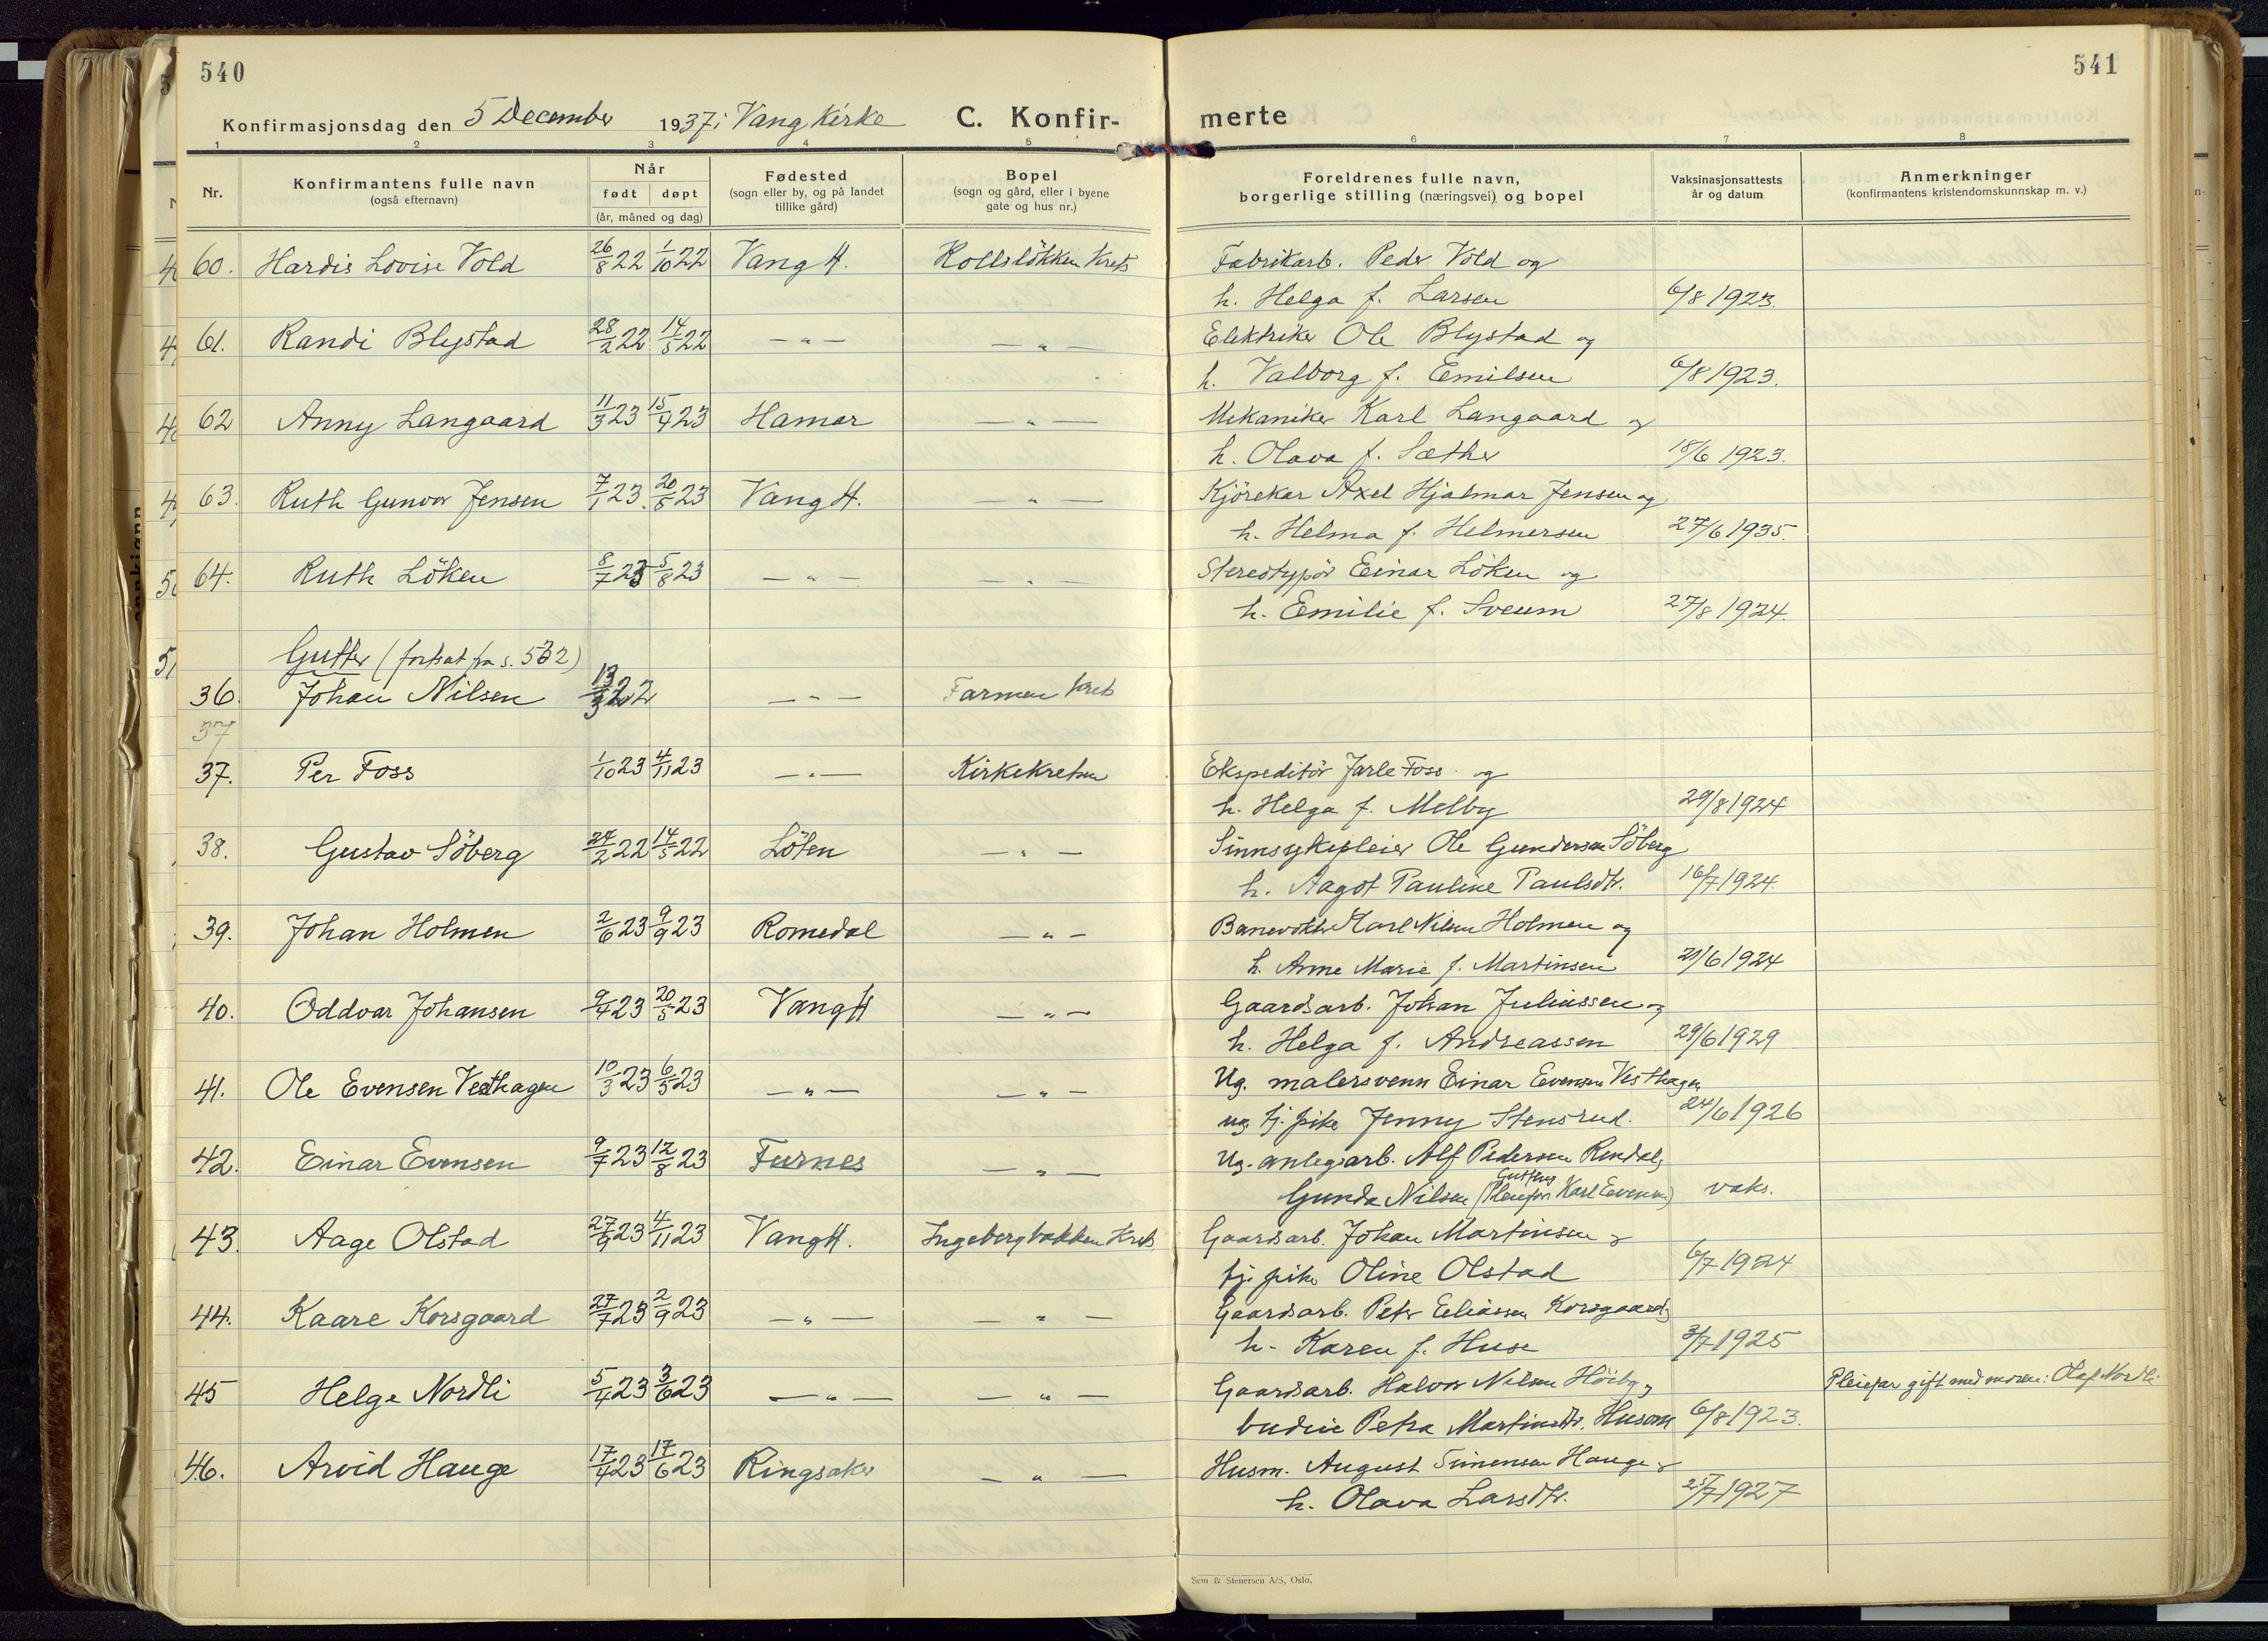 540
541
Konfirmasjonsdag den 5 December 1937 i Vang Kirke
C. Konfir-
merte
1 2 3 4 5 6 7 8
Nr.
Konfirmantens fulle navn
(også efternavn)
Når
født døpt
(år, måned og dag)
Fødested
(sogn eller by, og på landet
tillike gård)
Bopel
(sogn og gård, eller i byene
gate og hus nr.)
Foreldrenes fulle navn,
borgerlige stilling (næringsvei) og bopel
Vaksinasjonsattests
år og datum
Anmerkninger
(konfirmantens kristendomskunnskap m. v.)
60. Hardis Lovise Vold 26/8 22 1/10 22 Vang H. Kollsløkken Krets Fabrikarb. Peder Vold og
h. Helga f. Larsen 6/8 1923.
61. Randi Blystad 28/2 22 14/5 22 — " — — " — Elektriker Ole Blystad og
h. Valborg f. Emilsen 6/8 1923.
62 Anny Langaard 11/3 23 15/4 23 Hamar — " — Mekaniker Karl Langaard og
h. Olava f. Sæther 18/6 1923.
63. Ruth Gunvor Jensen 7/1 23. 20/5 23 Vang H. — " — Kjörekar Axel Hjalmar Jensen og
h. Helma f. Helmersen 27/6 1935.
64. Ruth Löken 8/7 23 5/8 23 — " — — " — Stereotypör Einar Löken og
h. Emilie f. Sveum 27/8 1924.
Gutter (fortsat fra s. 532)
36. Johan Nilsen 13/3 22 — " — Farmen Krets
37
37. Per Foss 1/10 23 4/11 23 — " — Kirkekretsen Ekspeditör Jarle Foss og
h. Helga f. Melby 29/8 1924
38. Gustav Söberg 24/2 22 14/5 22 Löten — " — Sinnsykepleier Ole Gundersen Söberg
h. Aagot Pauline Paulsdtr. 16/7 1924.
39. Johan Holmen 2/6 23 9/9 23 Romedal — " — Banevokter Karl Nilsen Holmen og
h. Anne Marie f. Martinsen 29/6 1924
40. Oddvar Johansen 9/4 23 20/5 23 Vang H — " — Gaardsarb. Johan Juliussen og
h. Helga f. Andreassen 29/6 1929
41. Ole Evensen Vesthagen 10/3 23 6/5 23 — " — — " — Ug. malersvenn Einar Evensen Vesthagen
ug tj. pike Jenny Stensrud. 24/6 1926
42. Einar Evensen 9/7 23 12/8 23 Furnes — " — Ug. anlegsarb. Alf Pedersen Rendal,
Guttens
Gunda Nilsen (Pleiefar Karl Evensen) vaks.
43. Aage Olstad 27/9 23 4/11 23 Vang H. Ingebergbakken Krets Gaardsarb. Johan Martinsen &
tj. pike Oline Olstad 6/7 1924
44. Kaare Korsgaard 27/7 23 2/9 23 — " — — " — Gaardsarb. Peter Eliassen Korsgaard,
h. Karen f. Huse 3/7 1925
45 Helge Nordli 5/4 23 3/6 23 — " — — " — Gaardsarb. Halvor Nilsen Höiby, Pleiefar gift med moren: Olaf Nordli
budeie Petra Martinsdtr. Husom 6/8 1923.
46. Arvid Hauge 17/4 23 17/6 23 Ringsaker — " — Husm. August Simensen Hauge &
h. Olava Larsdtr. 25/7 1927
Sem & Stenersen A/S, Oslo.